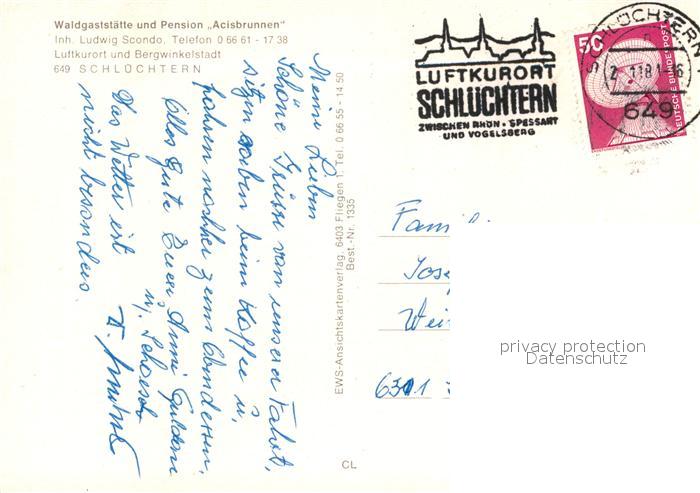 Waldgaststätte und Pension „Acisbrunnen"
Inh. Ludwig Scondo. Telefon 0 66 61 - 17 38
Luftkurort und Bergwinkelstadt
649 SCHLÜCHTERN
Meine Lieben
Schöne Grüsse von unserer Fahrt,
sitzen soeben beim Kaffee u.
fahren nachher zum Abendessen,
Alles Gute Eure Anni
u.
Das Wetter ist
nicht besonders.
EWS-Ansichtskartenverlag, 6403 Flieden 1, Tel. 0 66 55 - 14 50
Best.-Nr. 1335
CL
LUFTKURORT
SCHLÜCHTERN
ZWISCHEN RHÖN · SPESSART
UND VOGELSBERG
SCHLÜCHTERN
649
50
DEUTSCHE BUNDESPOST
Fami
Jose
Wei
6301
privacy protection
Datenschutz